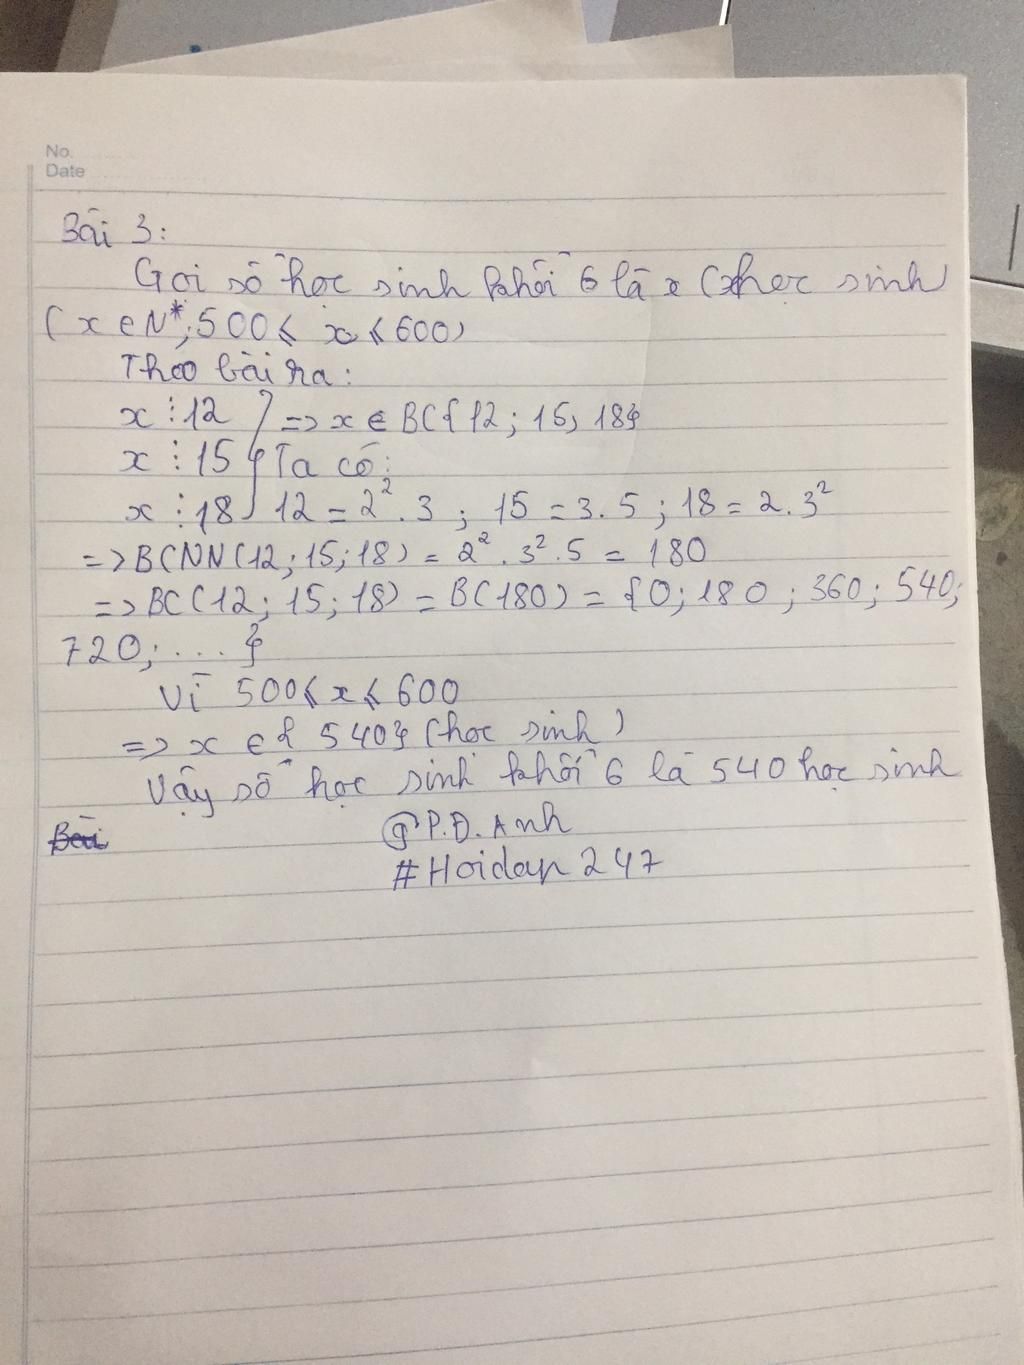 No.
Date
Bài 3:
Gọi số học sinh khối 6 là x (học sinh)
(x ∈ N*; 500 ⩽ x ⩽ 600)
Theo bài ra:
x ⋮ 12 } => x ∈ BC{12; 15; 18}
x ⋮ 15 } Ta có:
x ⋮ 18 } 12 = 2².3 ; 15 = 3.5 ; 18 = 2.3²
=> BCNN(12; 15; 18) = 2².3².5 = 180
=> BC(12; 15; 18) = B(180) = {0; 180; 360; 540;
720; ... }
Vì 500 ⩽ x ⩽ 600
=> x ∈ { 540} (học sinh)
Vậy số học sinh khối 6 là 540 học sinh
Bài
@P.D.Anh
#Hoidap247